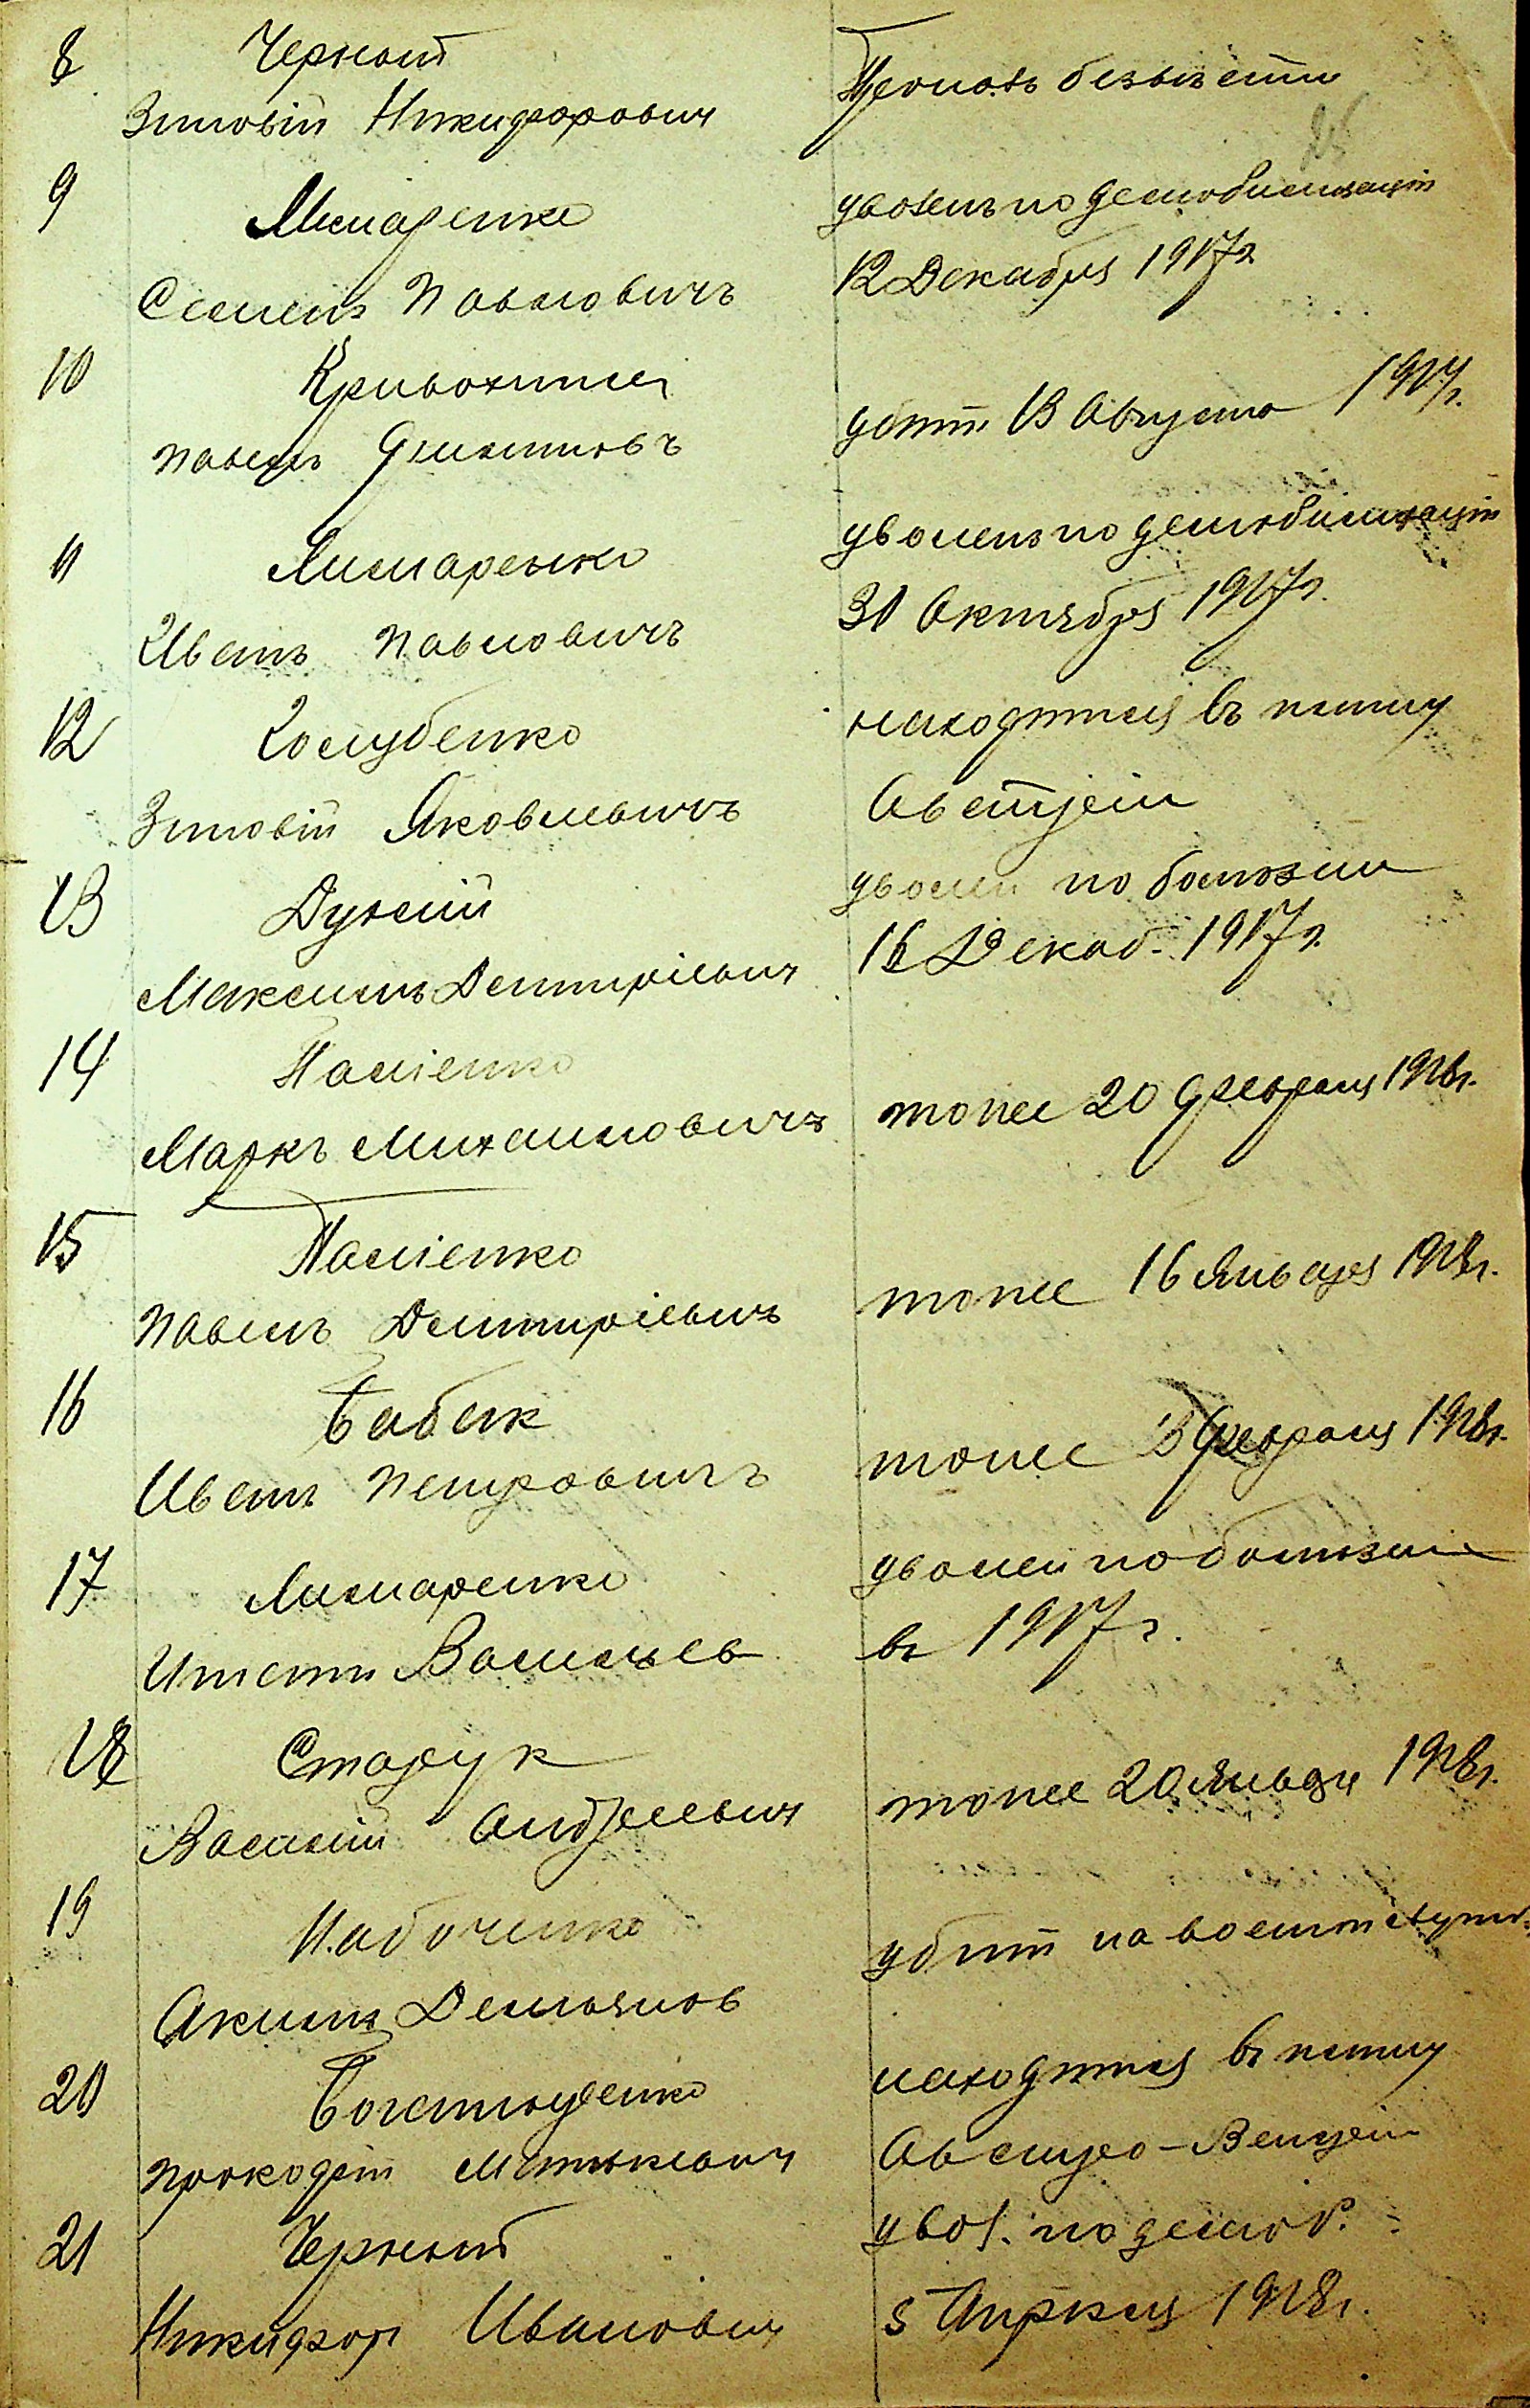 8 Черный
Зиновій Никифорович
Пропалъ безвѣсти
9 Лимаренко
Семенъ Павловичъ
уволенъ по демобилизаціи
12 Декабря 1917 г.
10 Кривохижа
Павелъ Филиповъ
убит. 13 Августа 1917 г.
11 Лимаренко
Иванъ Павловичъ
уволенъ по демобилизаціи
31 Октября 1917 г.
12 Голубенко
Зиновій Яковлевичъ
находится въ плену
Австріи
13 Духній
Максимъ Дмитріевич
уволен по болѣзни
16 Декаб. 1917 г.
14 Паліенко
Маркъ Михаиловичъ
тоже 20 Февраля 1918 г.
15 Паліенко
Павелъ Дмитріевичъ
тоже 16 Января 1918 г.
16 Бабак
Иванъ Петровичъ
тоже Февраля 1918 г.
17 Лимаренко
Игнатій Васильев
уволен по болѣзни
въ 1917 г.
18 Старук
Василій Андреевич
тоже 20 Января 1918 г.
19 Набоченко
Акимъ Демьянов
убит на военной служ.
20
Прокофій
находится въ плену
Австро-Венгріи
21 Черный
Никифор Иванович
увол. по демоб.
5 Апреля 1918 г.